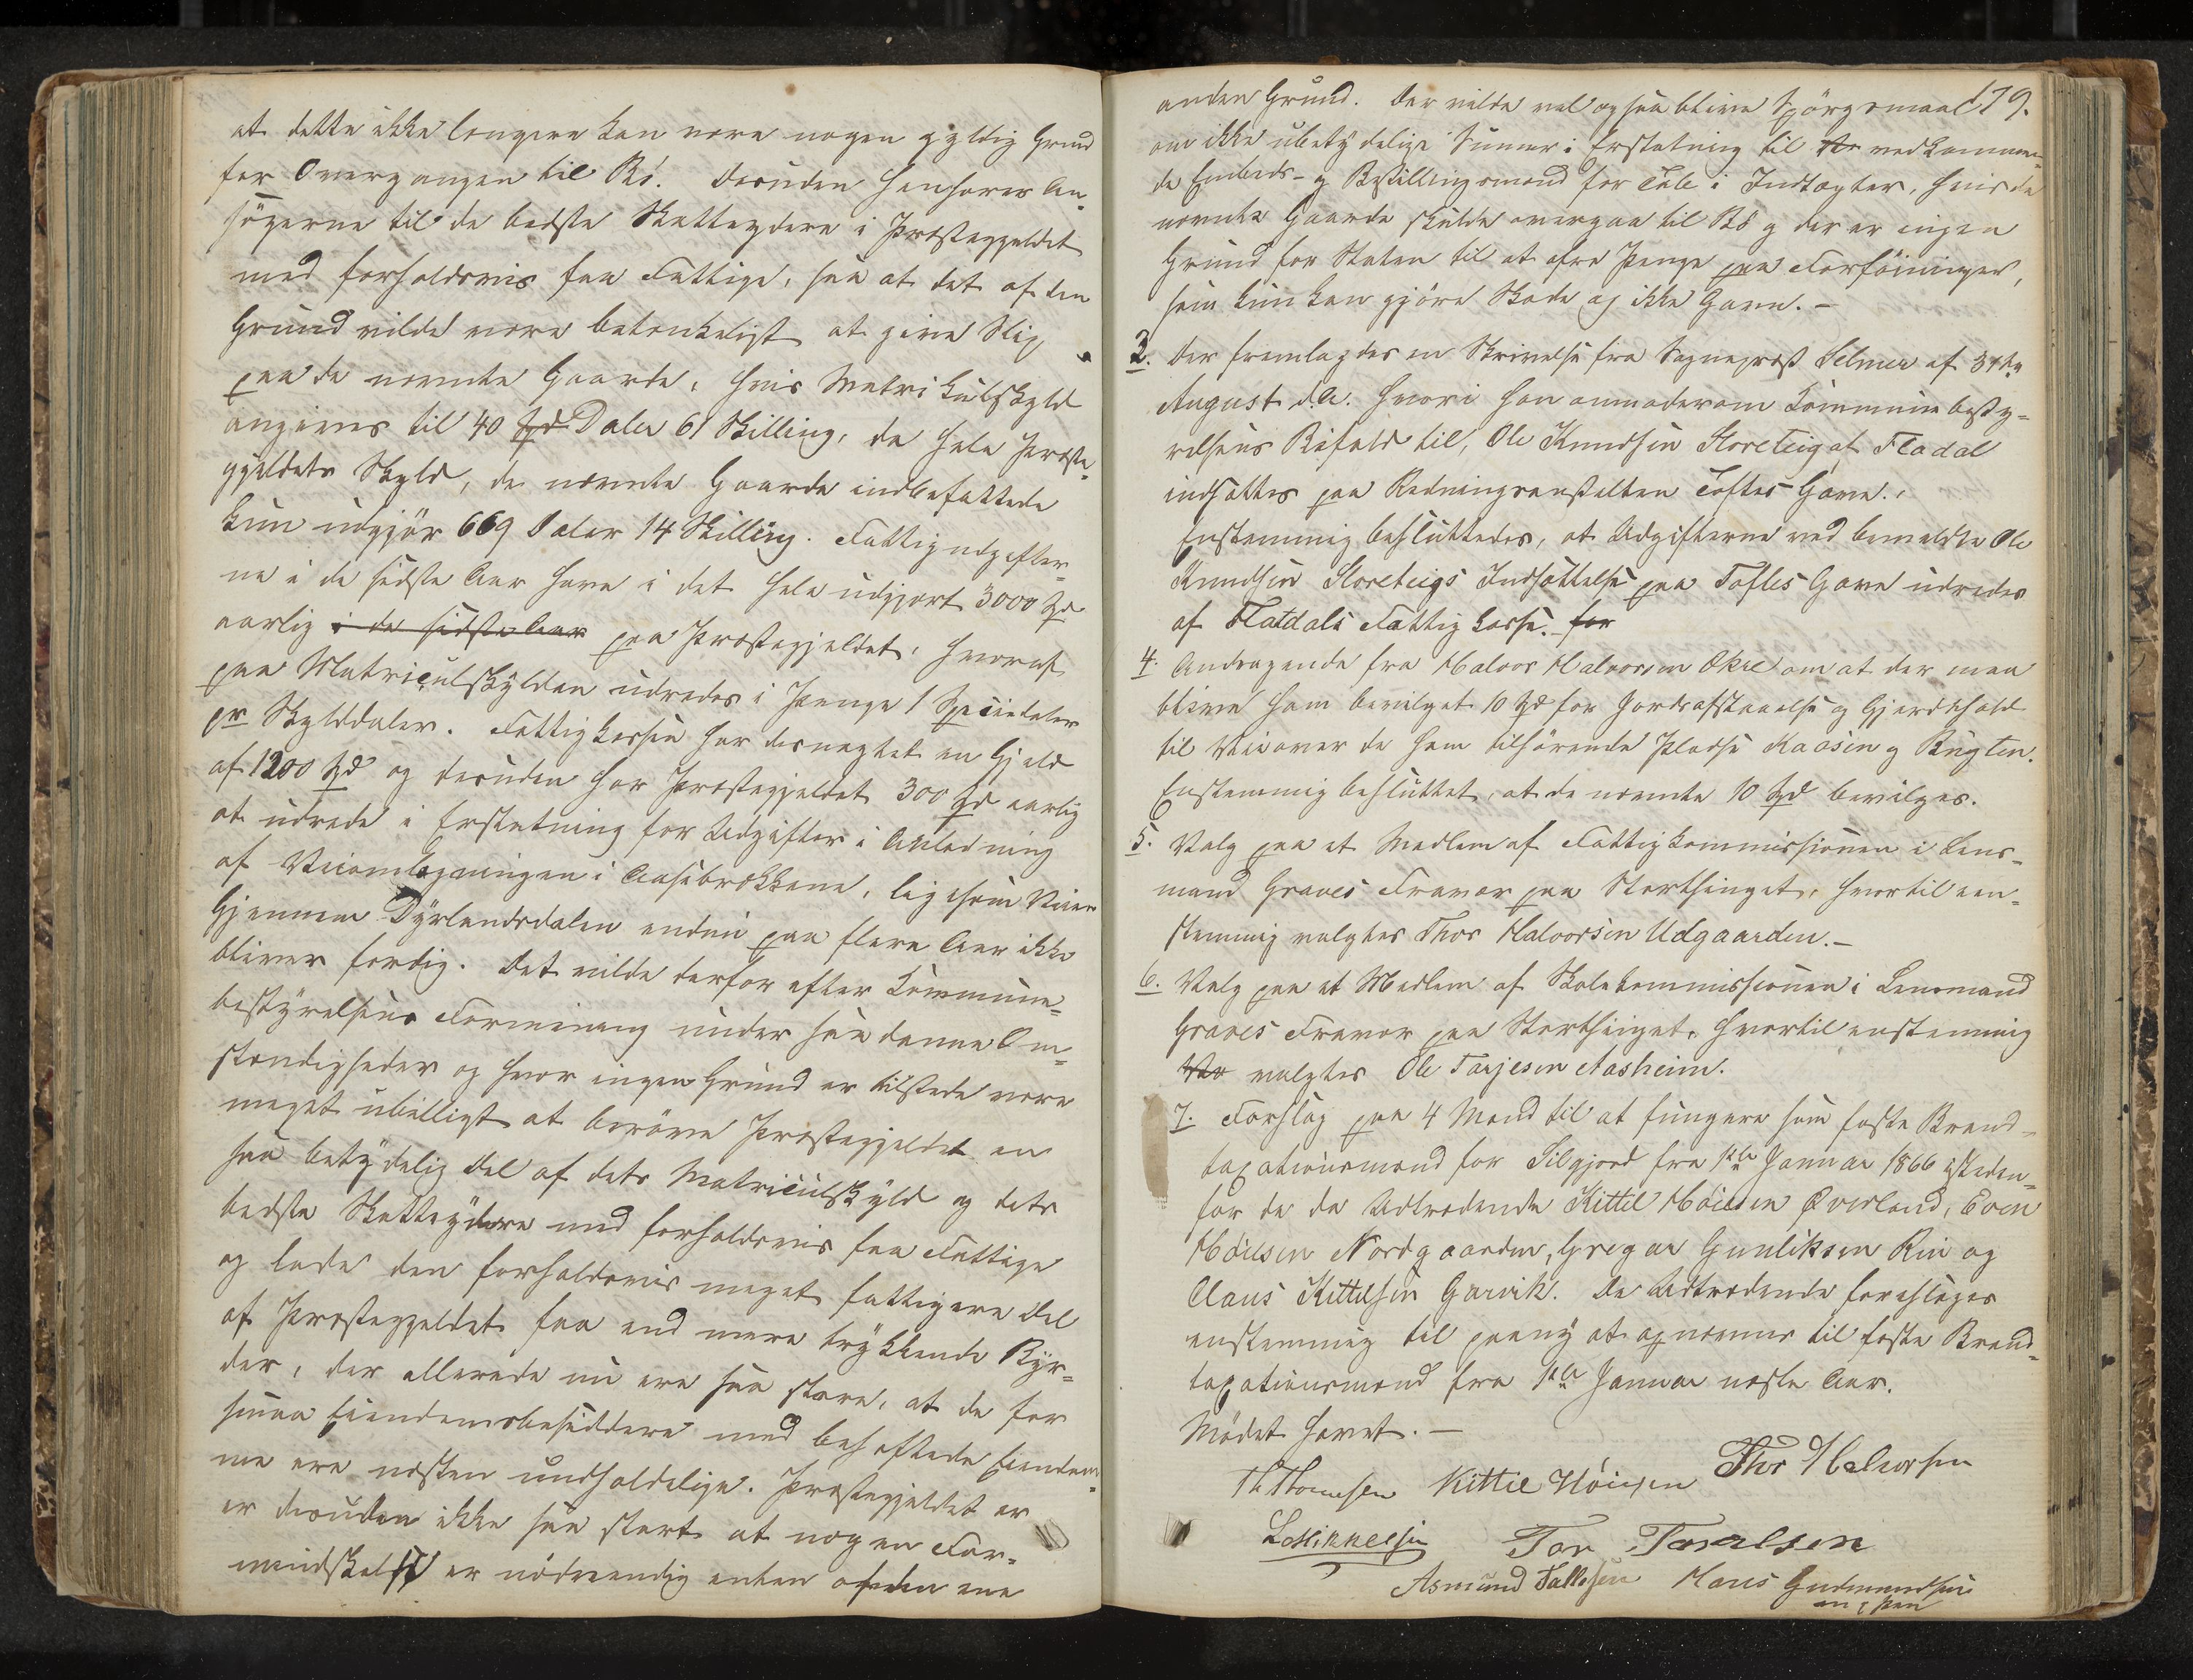 at dette ikke længere kan være nogen gyldig Grund
for Overgangen til Bø. Desuden henhører An-
søgerne til de bedste Skatteydere i Præstegjeldet
med forholdsvis faa Fattige, saa at det af den
Grund vilde være betænkeligt at give Slip
paa de nævnte Gaarde, hvis Matrikulskyld
angives til 40 Daler 61 Skilling, da hele Præste-
gjeldets Skyld, de nævnte Gaarde indbefattede
kun udgjør 669 Daler 14 Skilling. Fattigudgifter-
ne i de sidste Aar have i det hele udgjort 3000 Spd
aarlig i de sidste Aar paa Præstegjeldet, hvoraf
paa Matriculskylden udredes i Penge 1 Speciedaler
pr Skylddaler. Fattigkassen har desuagtet en Gjeld
af 1200 Spd og desuden har Præstegjeldet 300 Spd aarlig
at udrede i Erstatning for Udgifter i Anledning
af Veiomlægningen i Aasebrækkene, ligesom Veien
Gjennem Dyrlandsdalen endnu paa flere Aar ikke
bliver færdig. Det vilde derfor efter Kommune-
bestyrelsens Formening under saadanne Om-
stændigheder og hvor ingen Grund er tilstede være
meget ubilligt at berøve Præstegjeldet en
saa betydelig Del af dets Matriculskyld og dets
bedste Skatteydere med forholdsvis faa Fattige
og lade den forholdsvis meget fattigere Del
af Præstegjeldet faa end mere trykkende Byr-
der, der allerede nu ere saa store, at de for
smaa Eiendomsbesiddere med behæftede Eiendom-
me ere næsten uudholdelige. Præstegjeldet er
er desuden ikke saa stort at nogen For-
mindskelse er nødvendig enten af den ene
179.
anden Grund. Der vilde vel ogsaa blive Spørgsmaal
om ikke ubetydelige Summer i Erstatning til vedkommen-
de Embeds- og Bestillingsmænd for Tab i Indtægter, hvis de
nævnte Gaarde skulde overgaa til Bø og der er ingen
Grund for Staten til at ofre Penge paa Forføininger,
som kun kan gjøre Skade og ikke Gavn.-
3. Der fremlagdes en Skrivelse fra Sognepræst Selmer af 31te
August d.A. hvori han anmoder om Kommunebesty-
relsens Bifald til, Ole Knudsen Storeteig af Fladal
indsættes paa Redningsanstalten Toftes Gave.
Enstemmig besluttedes, at Udgifterne ved bemeldte Ole
Knudsen Storeteigs Indsættelse paa Toftes Gave udredes
af Flatdals Fattigkasse. for
4. Andragende fra Halvor Halvorsen Økre om at der maa
blive ham bevilget 10 Spd for Jordafstaaelse og Gjerdehold
til Vei over de ham tilhørende Pladse Kaasen og Bugten.
Enstemmig besluttet, at de nævnte 10 Spd bevilges.
5. Valg paa et Medlem af Fattigkommissionen i Lens-
mand Graves Fravær paa Storthinget, hvortil een-
stemmig valgtes Thor Halvorsen Udgaarden.-
6. Valg paa et Medlem af Skolekommissionen i Lensmand
Graves Fravær paa Storthinget, hvortil enstemmig
valgtes Ole Tarjesen Aasheim.
7. Forslag paa 4 Mænd til at fungere som faste Brand-
taxationsmænd for Silgjord fra 1ste Januar 1866 isteden-
for de da Udtrædende Kittil Høiesen Øverland, Even
Høiesen Nordgaarden, Gregar Gunliksen Rui og
Claus Kittelsen Garvik. De Udtrædende foresloges
enstemmig til paany at opnævnes til faste Brand-
taxationsmænd fra 1ste Januar næste Aar.
Mødet hævet.-
Th Thomesen Kittil Høiesen Thor Halvorsen
L Mikkelsen Tor Tovalsen
Asmund Tallefsen Hans Gudmundsen